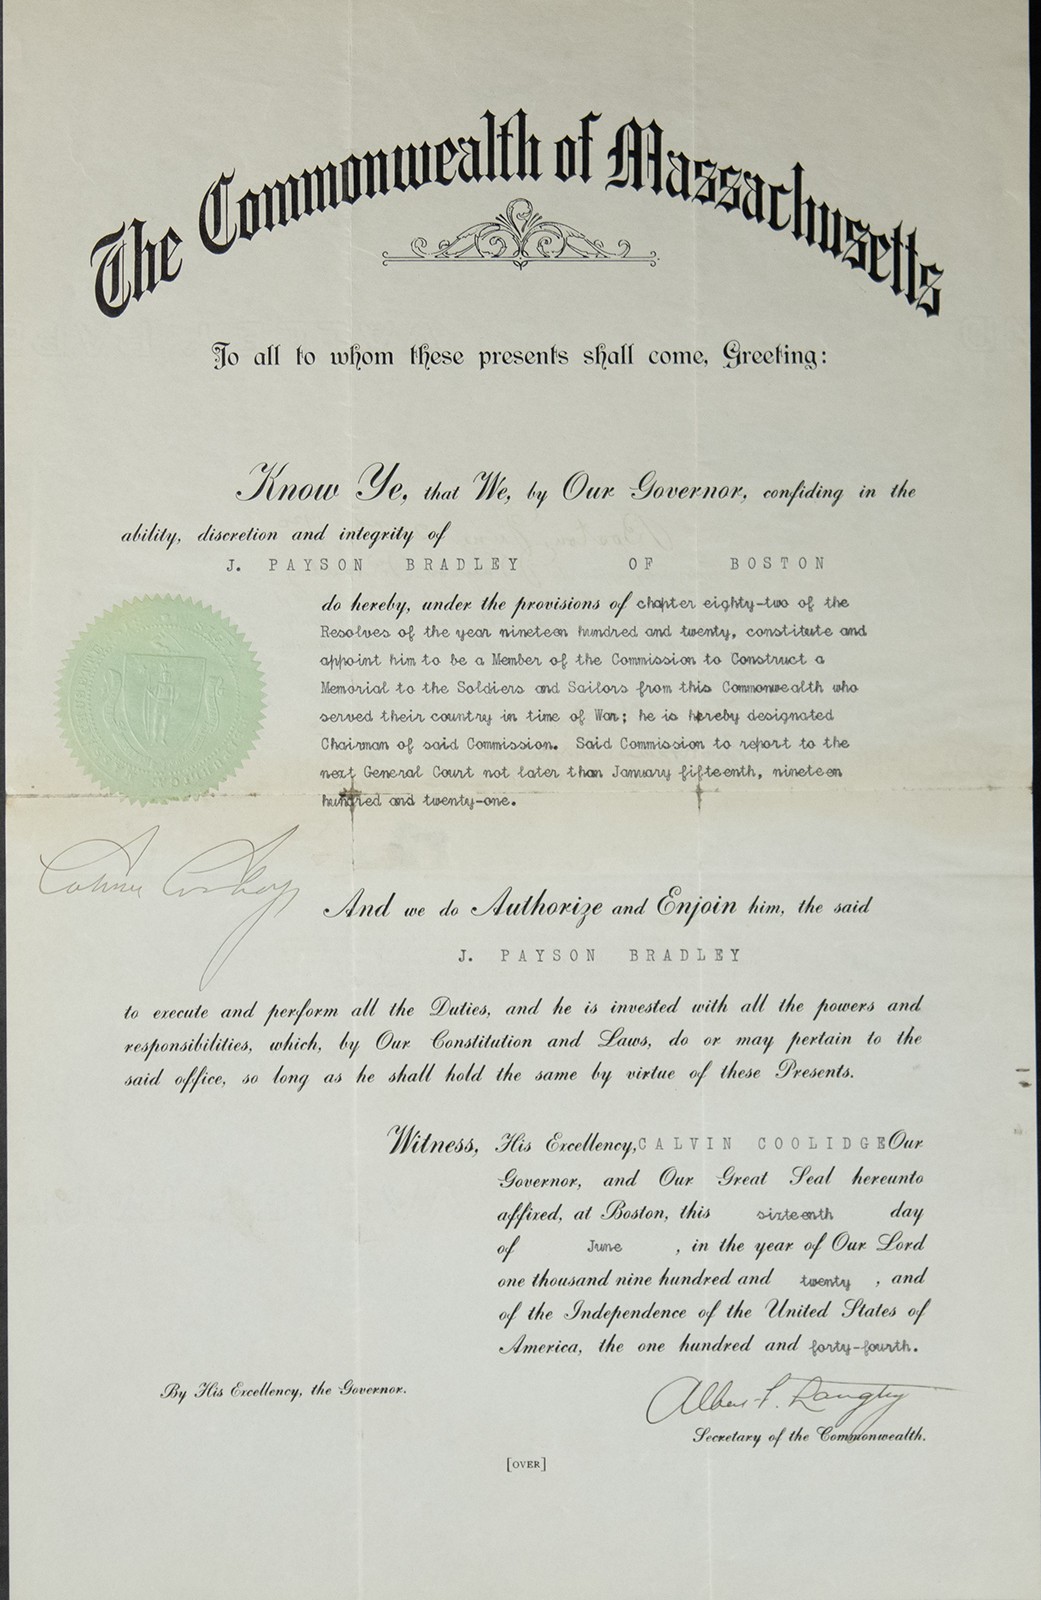 The Commonwealth of Massachusetts
To all to whom these presents shall come, Greeting:
Know Ye, that We, by Our Governor, confiding in the
ability, discretion and integrity of
J. PAYSON BRADLEY OF BOSTON
do hereby, under the provisions of chapter eighty-two of the
Resolves of the year nineteen hundred and twenty, constitute and
appoint him to be a Member of the Commission to Construct a
Memorial to the Soldiers and Sailors from this Commonwealth who
served their country in time of War; he is hereby designated
Chairman of said Commission. Said Commission to report to the
next General Court not later than January fifteenth, nineteen
hundred and twenty-one.
Calvin Coolidge
And we do Authorize and Enjoin him, the said
J. PAYSON BRADLEY
to execute and perform all the Duties, and he is invested with all the powers and
responsibilities, which, by Our Constitution and Laws, do or may pertain to the
said office, so long as he shall hold the same by virtue of these Presents.
Witness, His Excellency, CALVIN COOLIDGE Our
Governor, and Our Great Seal hereunto
affixed, at Boston, this sixteenth day
of June , in the year of Our Lord
one thousand nine hundred and twenty , and
of the Independence of the United States of
America, the one hundred and forty-fourth.
By His Excellency, the Governor.
Albert P. Langtry
Secretary of the Commonwealth.
[OVER]